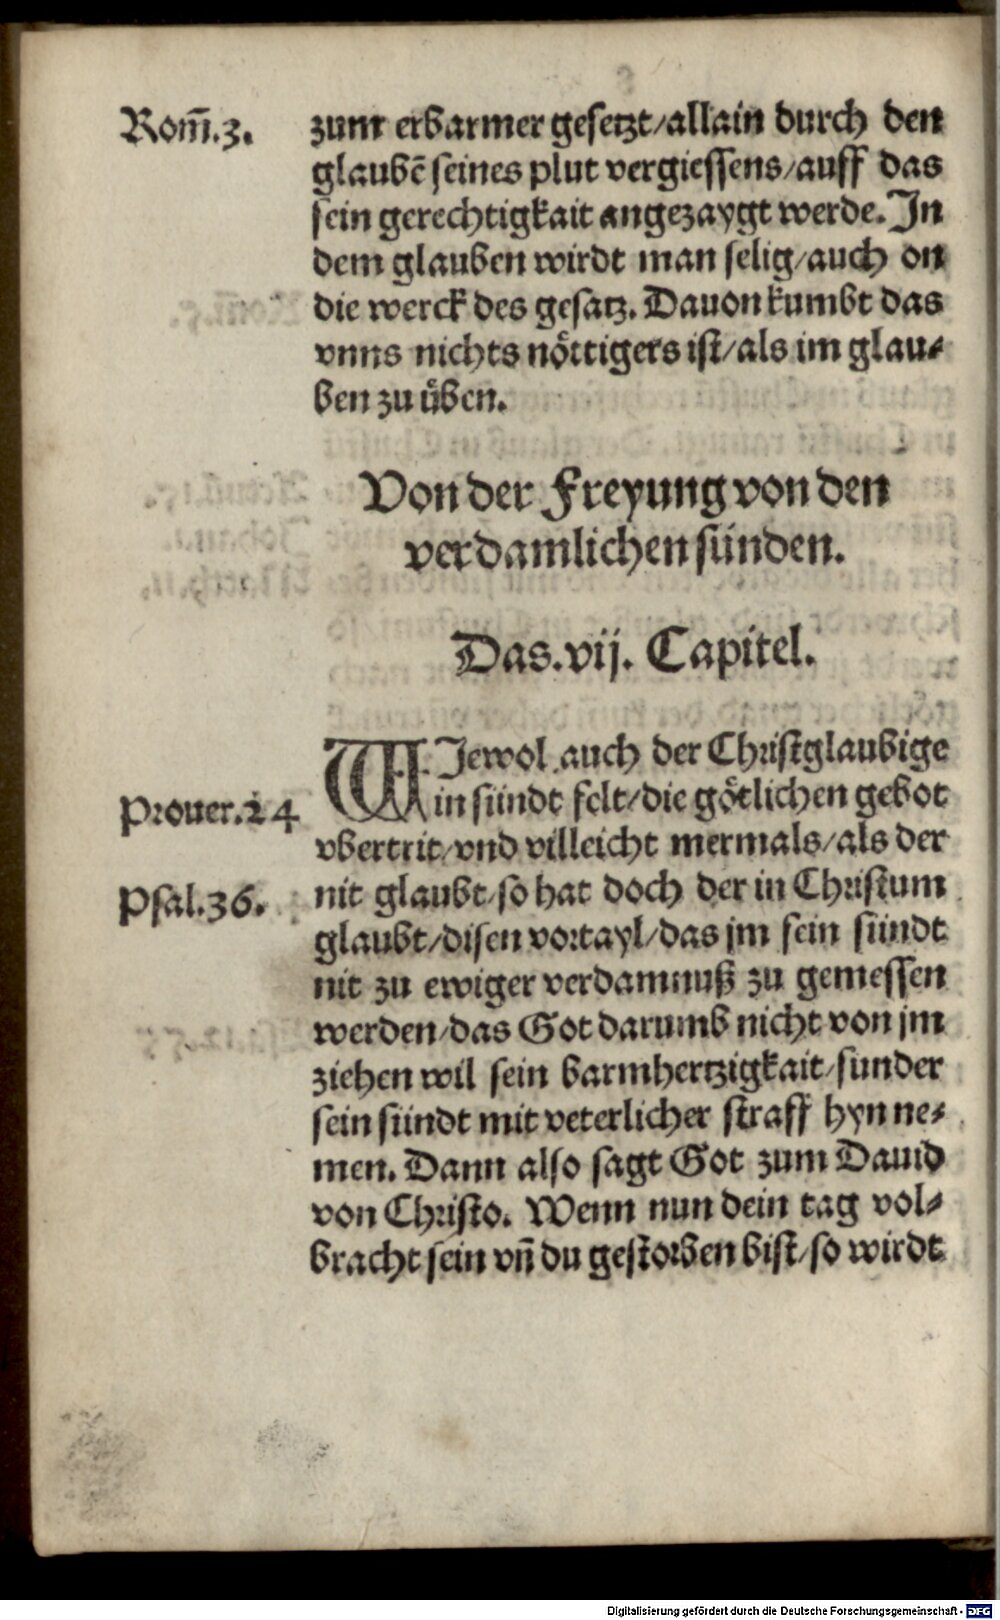 Rom̃.3.
zum erbarmer gesetzt/allain durch den
glaubē seines plut vergiessens/auff das
sein gerechtigkait angezaygt werde. In
dem glauben wirdt man selig/auch on
die werck des gesatz. Dauon kumbt das
vnns nichts nöttigers ist/als im glau⸗
ben zu üben.
Von der Freyung von den
verdamlichen sünden.
Das.vij. Capitel.
WJewol auch der Christglaubige
Prouer.24
in sündt felt/die götlichen gebot
vbertrit/vnd villeicht mermals/als der
Psal.36.
nit glaubt/so hat doch der in Christum
glaubt/disen vortayl/das jm sein sündt
nit zu ewiger verdamnuß zu gemessen
werden/das Got darumb nicht von jm
ziehen wil sein barmhertzigkait/sunder
sein sündt mit veterlicher straff hyn ne⸗
men. Dann also sagt Got zum Dauid
von Christo. Wenn nun dein tag vol⸗
bracht sein vñ du gestorben bist/so wirdt
Digitalisierung gefördert durch die Deutsche Forschungsgemeinschaft - DFG